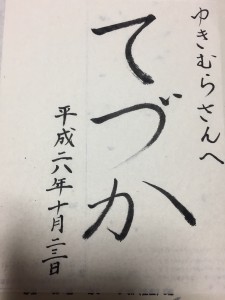 ゆきむらさんへ
てづか
平成二八年十月二三日